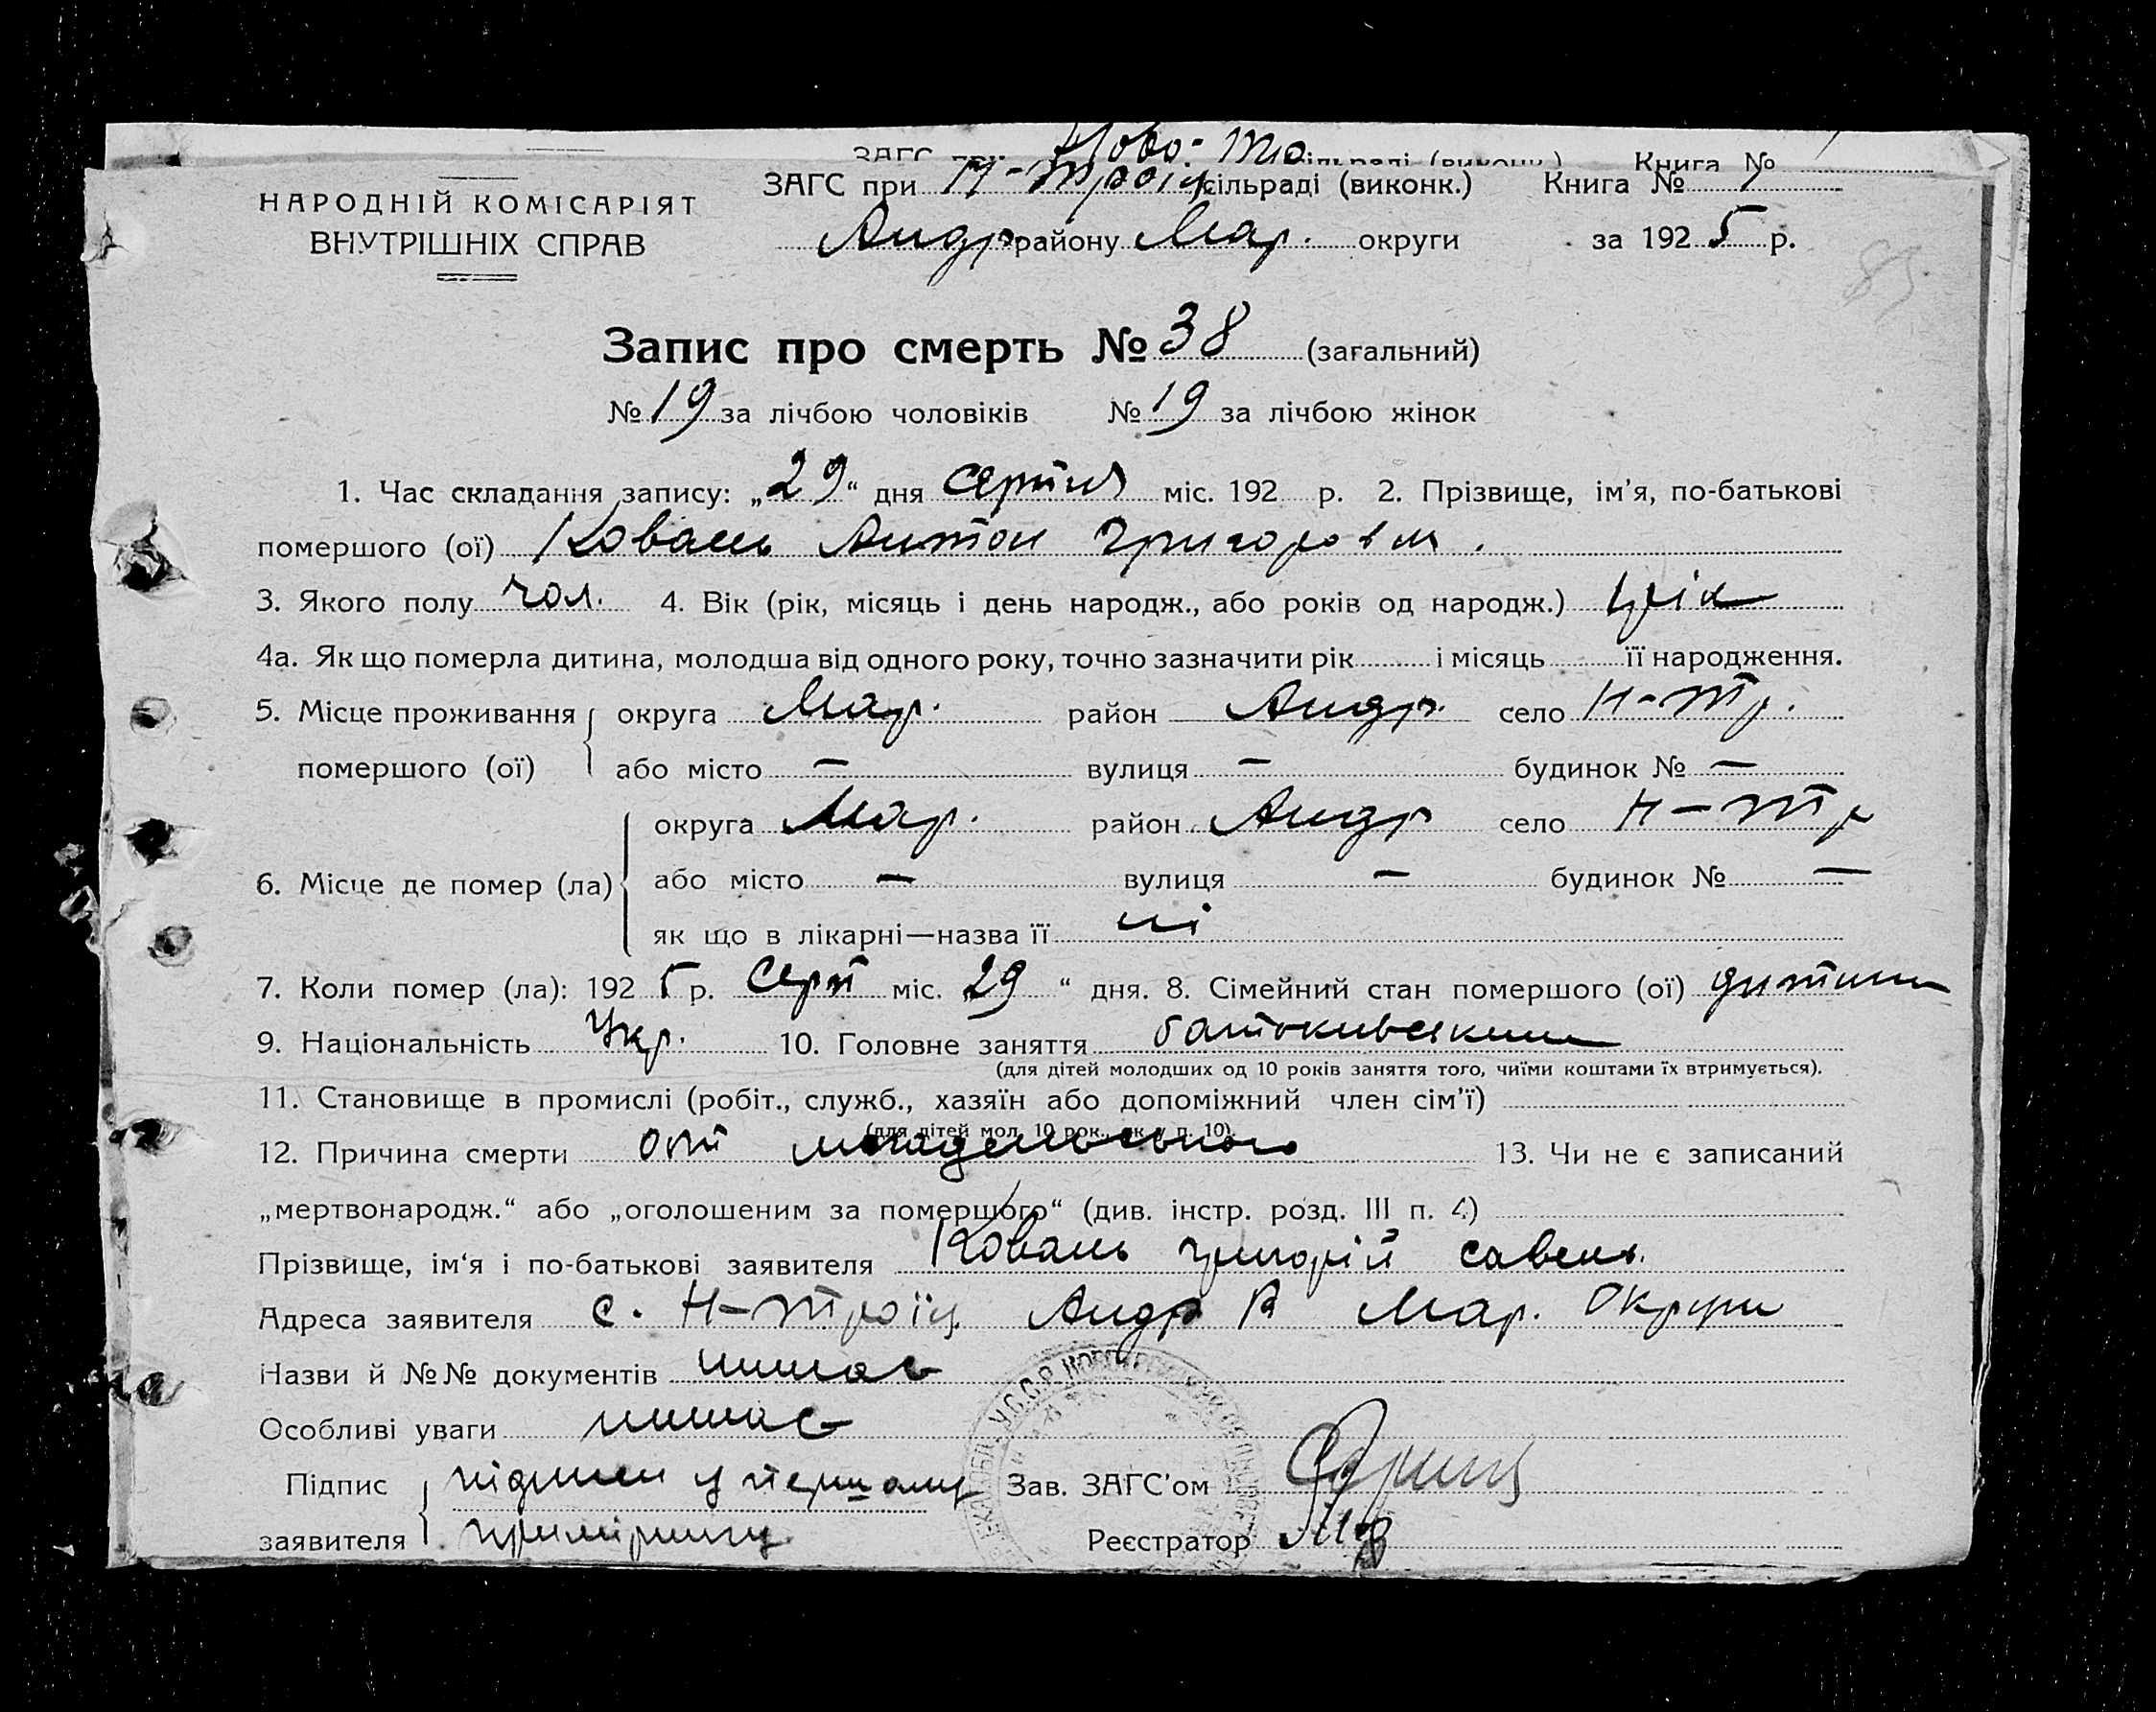 Ново-
ЗАГС при Книга №
НАРОДНІЙ КОМІСАРІЯТ
ВНУТРІШНІХ СПРАВ
ЗАГС при Н-Троїц сільраді (виконк.) Книга № 1
Андр району Мар. округи за 1925 р.
83
Запис про смерть № 38 (загальний)
№ 19 за лічбою чоловіків № 19 за лічбою жінок
1. Час складання запису: „29“ дня серпня міс. 192 р. 2. Прізвище, ім’я, по-батькові
помершого (ої) Коваль Антон Григоров.
3. Якого полу чол. 4. Вік (рік, місяць і день народж., або років од народж.) 1 рік
4а. Як що померла дитина, молодша від одного року, точно зазначити рік і місяць її народження.
5. Місце проживання округа Мар. район Андр. село Н-Тр.
помершого (ої) або місто — вулиця — будинок № —
округа Мар. район Андр село Н-Тр
6. Місце де помер (ла) або місто — вулиця — будинок № —
як що в лікарні—назва її ні
7. Коли помер (ла): 1925 р. Серп міс. 29 “ дня. 8. Сімейний стан помершого (ої) дитина
9. Національність Укр. 10. Головне заняття
(для дітей молодших од 10 років заняття того, чиїми коштами їх втримується).
11. Становище в промислі (робіт., служб., хазяїн або допоміжний член сім’ї)
(для дітей мол. 10 рок., як у п. 10).
12. Причина смерти от 13. Чи не є записаний
„мертвонародж.“ або „оголошеним за помершого“ (див. інстр. розд. III п. 4)
Прізвище, ім‘я і по-батькові заявителя Коваль Григорій Савел.
Адреса заявителя с. Н-Троїц. Андр Р Мар. Округи
Назви й №№ документів немає
Особливі уваги немає
Підпис підпис у першому Зав. ЗАГС’ом
заявителя примірнику Реєстратор